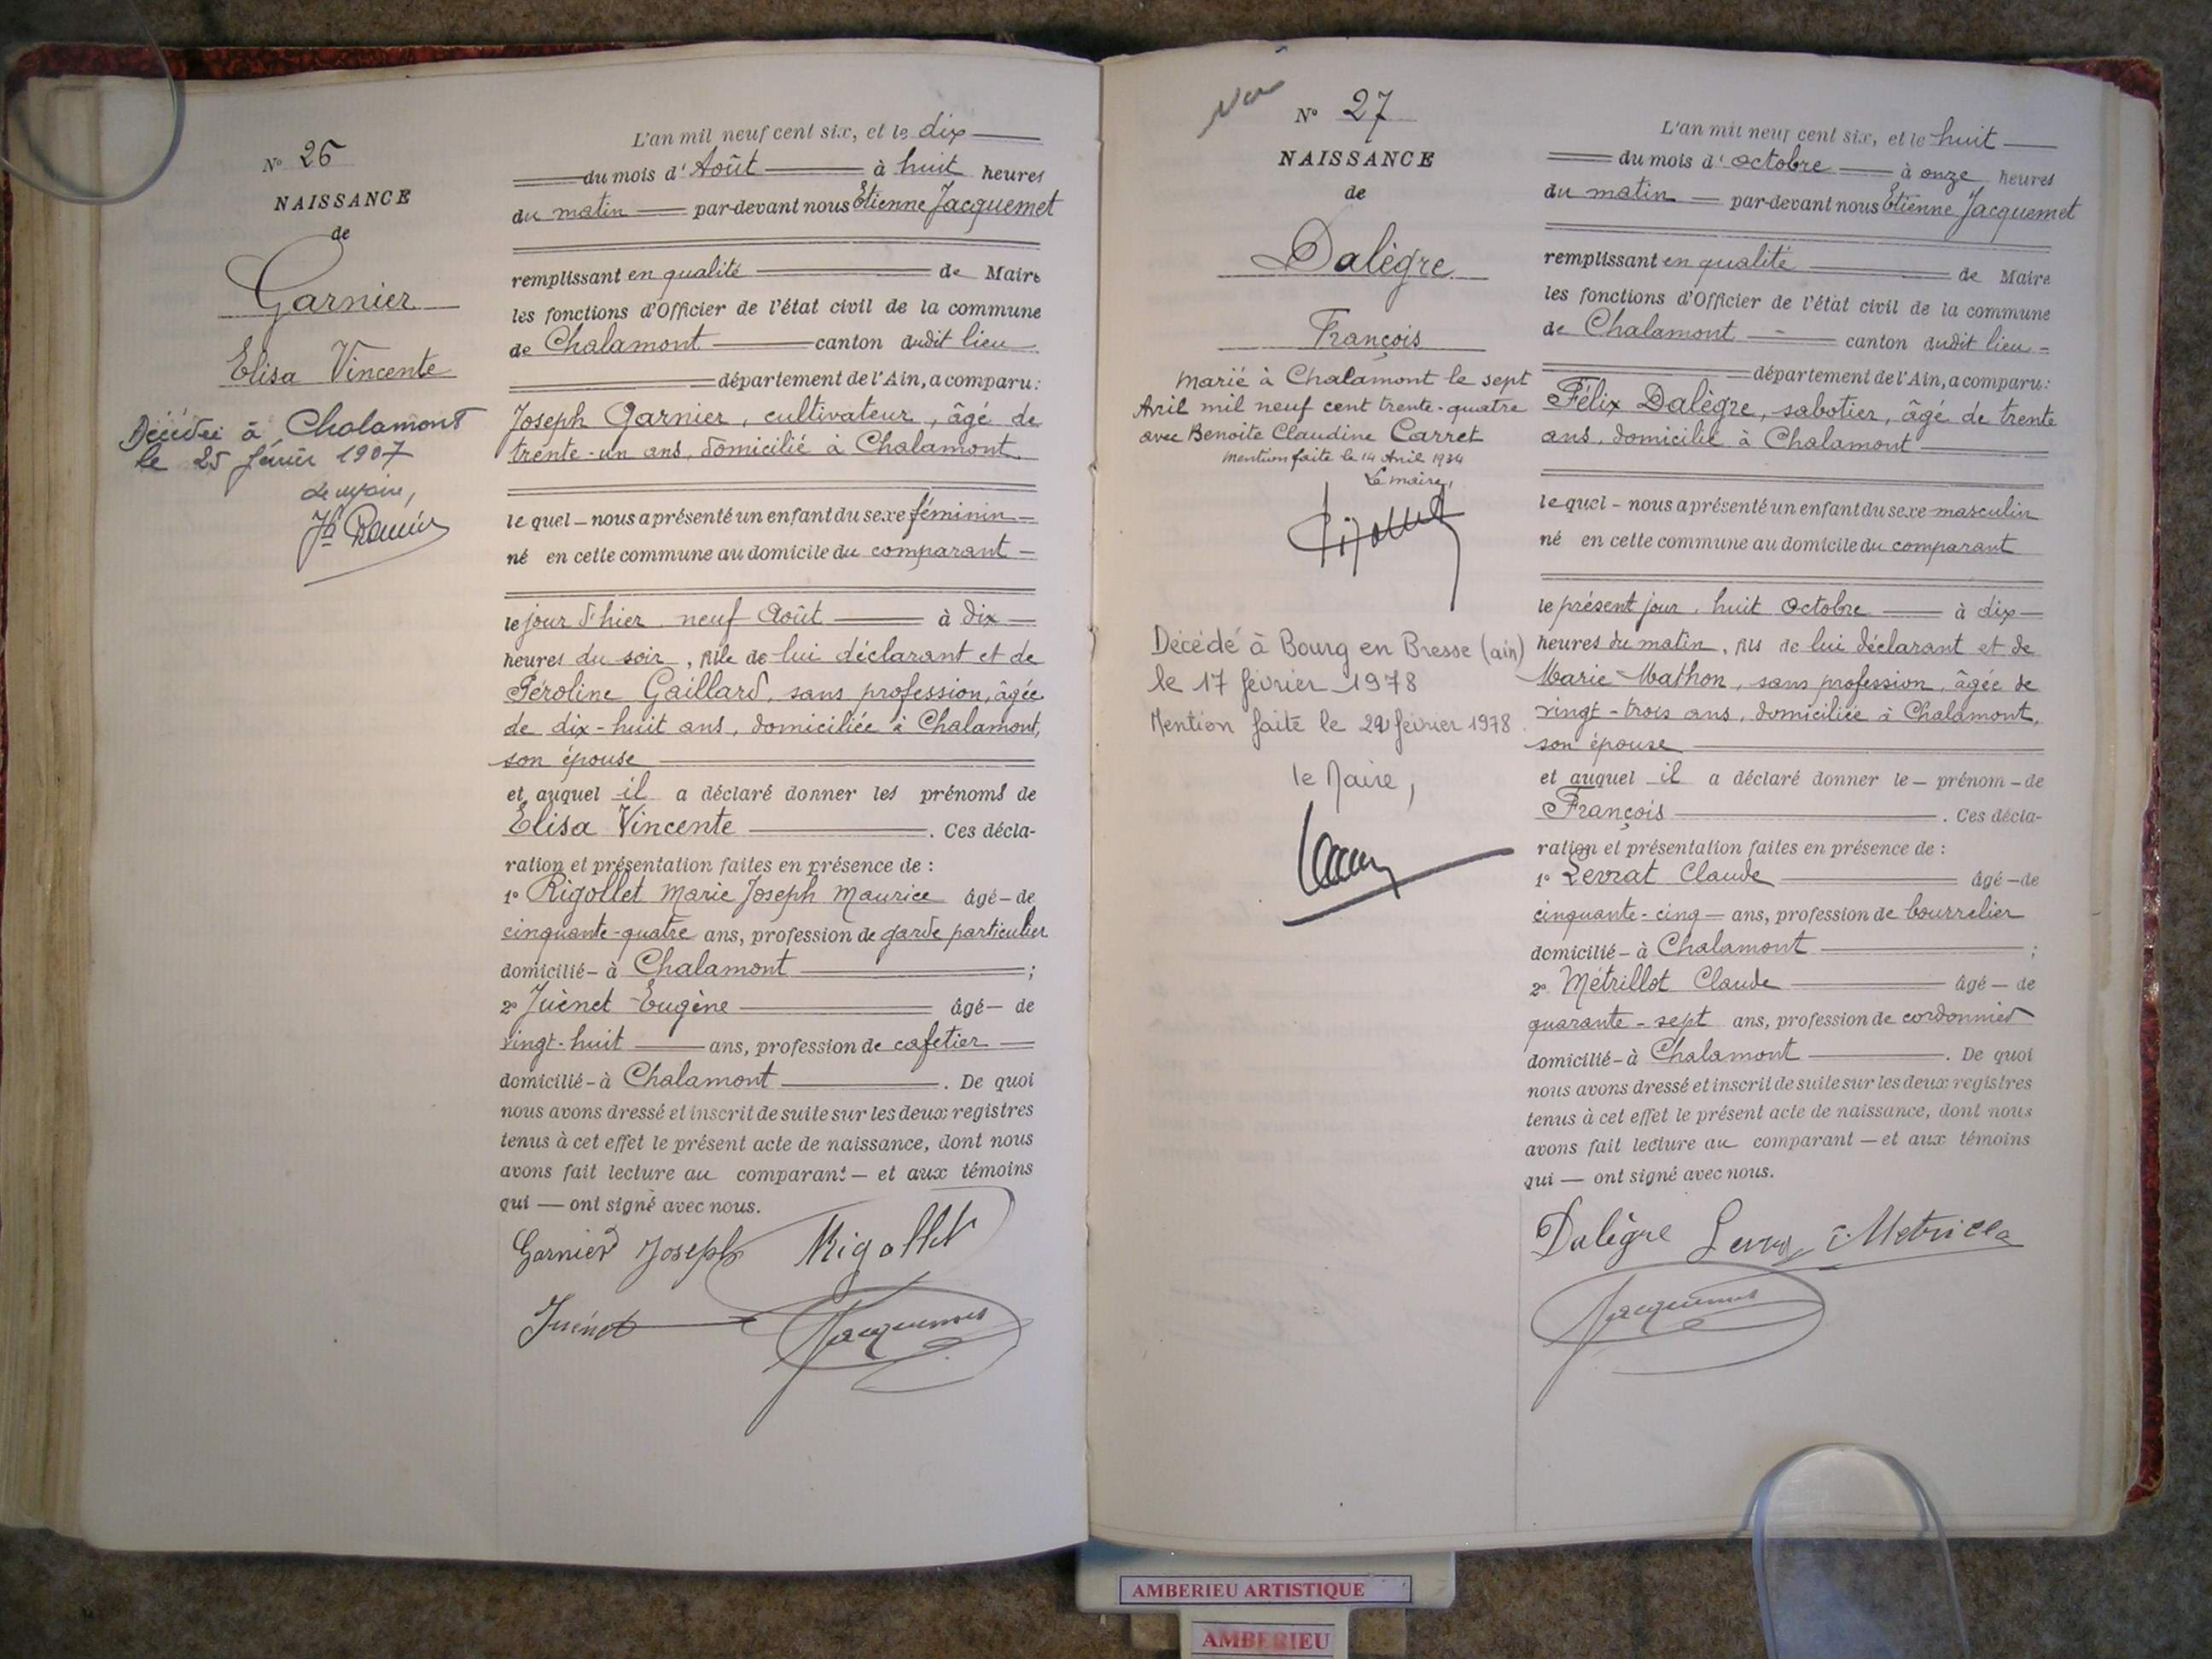 N° 26
NAISSANCE
de
Garnier
Elisa Vincente
Décédée à Chalamont
le 25 février 1907
Le maire,
L'an mil neuf cent six, et le dix
du mois d'Août à huit heures
du matin par-devant nous Etienne Jacquemet
remplissant en qualité de Maire
les fonctions d'Officier de l'état civil de la commune
de Chalamont canton dudit lieu
département de l'Ain, a comparu:
Joseph Garnier, cultivateur, âgé de
trente-un ans, domicilié à Chalamont
le quel - nous a présenté un enfant du sexe féminin
né en cette commune au domicile du comparant
le jour d'hier neuf Août à dix
heures du soir, fille de lui déclarant et de
Péroline Gaillard, sans profession, âgée
de dix-huit ans, domiciliée à Chalamont,
son épouse
et auquel il a déclaré donner les prénoms de
Elisa Vincente. Ces décla-
ration et présentation faites en présence de :
1° Rigollet Marie Joseph Maurice âgé - de
cinquante-quatre ans, profession de garde particulier
domicilié - à Chalamont ;
2° Juénet Eugène âgé - de
vingt-huit ans, profession de cafetier
domicilié - à Chalamont. De quoi
nous avons dressé et inscrit de suite sur les deux registres
tenus à cet effet le présent acte de naissance, dont nous
avons fait lecture au comparant - et aux témoins
qui - ont signé avec nous.
Garnier Joseph Rigollet
Juénet Jacquemet
N° 27
NAISSANCE
de
Dalègre
François
Marié à Chalamont le sept
Avril mil neuf cent trente-quatre
avec Benoite Claudine Carret
Mention faite le 14 Avril 1934
Le maire,
Décédé à Bourg en Bresse (ain)
le 17 février 1978
Mention faite le février 1978
le Maire,
L'an mil neuf cent six, et le huit
du mois d'octobre à onze heures
du matin par-devant nous Etienne Jacquemet
remplissant en qualité de Maire
les fonctions d'Officier de l'état civil de la commune
de Chalamont canton dudit lieu
département de l'Ain, a comparu:
Félix Dalègre, sabotier, âgé de trente
ans, domicilié à Chalamont
le quel - nous a présenté un enfant du sexe masculin
né en cette commune au domicile du comparant
le présent jour, huit Octobre à dix
heures du matin, fils de lui déclarant et de
Marie Mathon, sans profession, âgée de
vingt-trois ans, domiciliée à Chalamont,
son épouse
et auquel il a déclaré donner le - prénom - de
François. Ces décla-
ration et présentation faites en présence de :
1° Levrat Claude âgé - de
cinquante-cinq ans, profession de bourrelier
domicilié - à Chalamont ;
2° Métrillot Claude âgé - de
quarante-sept ans, profession de cordonnier
domicilié - à Chalamont. De quoi
nous avons dressé et inscrit de suite sur les deux registres
tenus à cet effet le présent acte de naissance, dont nous
avons fait lecture au comparant - et aux témoins
qui - ont signé avec nous.
Dalègre
Jacquemet
AMBERIEU ARTISTIQUE
AMBERIEU